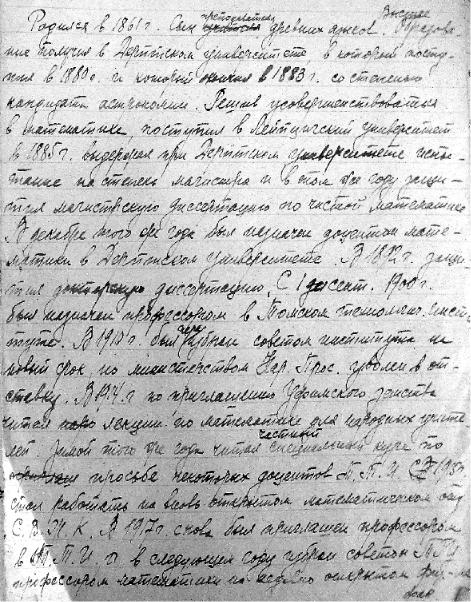 Родился в 1861 г. Сын преподавателя древних языков. Высшее образова-
ние получил в Дерптском университете, в который посту-
пил в 1880 г. и который окончил в 1883 г. со степенью
кандидата астрономии. Решив усовершенствоваться
в математике, поступил в Лейпцигский университет
в 1885 г. выдержал при Дерптском университете испы-
тание на степень магистра и в том же году защи-
тил магистерскую диссертацию по чистой математике
В декабре того же года был назначен доцентом мате-
матики в Дерптском университете. В 1892 г. защи-
тил докторскую диссертацию. С 1 1900 г.
был назначен профессором в Томском технологич. инсти-
туте. В 191 г. был избран советом института на
новый срок, но министерством Нар. Прос. уволен в от-
ставку. В 1914 г. по приглашению Уфимского земства
читал лекции по математике для народных учите-
лей. Зимой того же года читал частным специальный курс по
просьбе некоторых доцентов П. П. И. С 1915 г.
стал работать на вновь открытом математическом отд.
С. В. Ж. К. В 1917 г. снова был приглашен профессором
в Т. П. И. и в следующем году избран советом
профессором математики на недавно открытом физ-